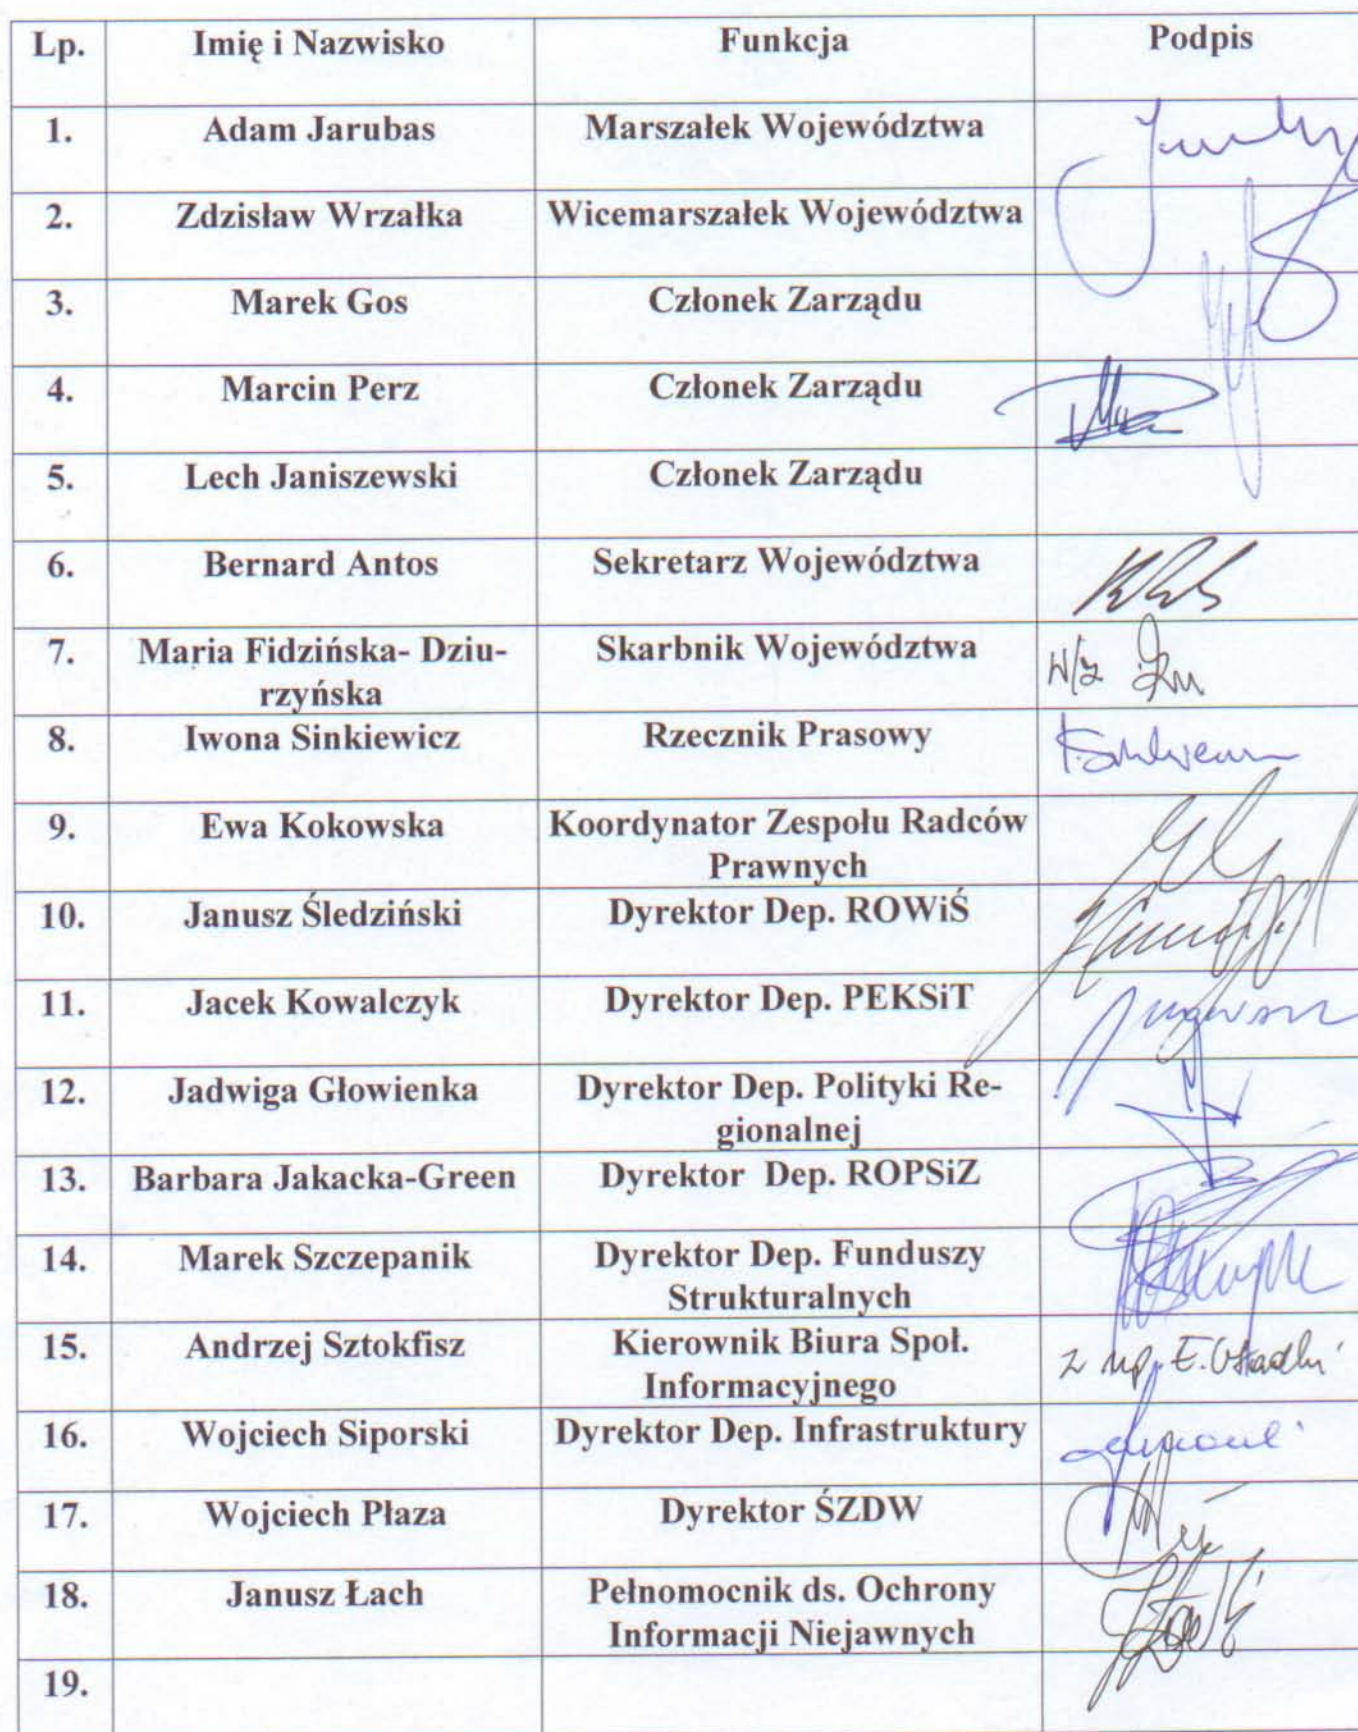 Lp. Imię i Nazwisko Funkcja Podpis
1. Adam Jarubas Marszałek Województwa
2. Zdzisław Wrzałka Wicemarszałek Województwa
3. Marek Gos Członek Zarządu
4. Marcin Perz Członek Zarządu
5. Lech Janiszewski Członek Zarządu
6. Bernard Antos Sekretarz Województwa
7. Maria Fidzińska- Dziu- Skarbnik Województwa w/z
rzyńska
8. Iwona Sinkiewicz Rzecznik Prasowy
9. Ewa Kokowska Koordynator Zespołu Radców
Prawnych
10. Janusz Śledziński Dyrektor Dep. ROWiŚ
11. Jacek Kowalczyk Dyrektor Dep. PEKSiT
12. Jadwiga Głowienka Dyrektor Dep. Polityki Re-
gionalnej
13. Barbara Jakacka-Green Dyrektor Dep. ROPSiZ
14. Marek Szczepanik Dyrektor Dep. Funduszy
Strukturalnych
15. Andrzej Sztokfisz Kierownik Biura Społ. z up. E.
Informacyjnego
16. Wojciech Siporski Dyrektor Dep. Infrastruktury
17. Wojciech Płaza Dyrektor ŚZDW
18. Janusz Łach Pełnomocnik ds. Ochrony
Informacji Niejawnych
19.